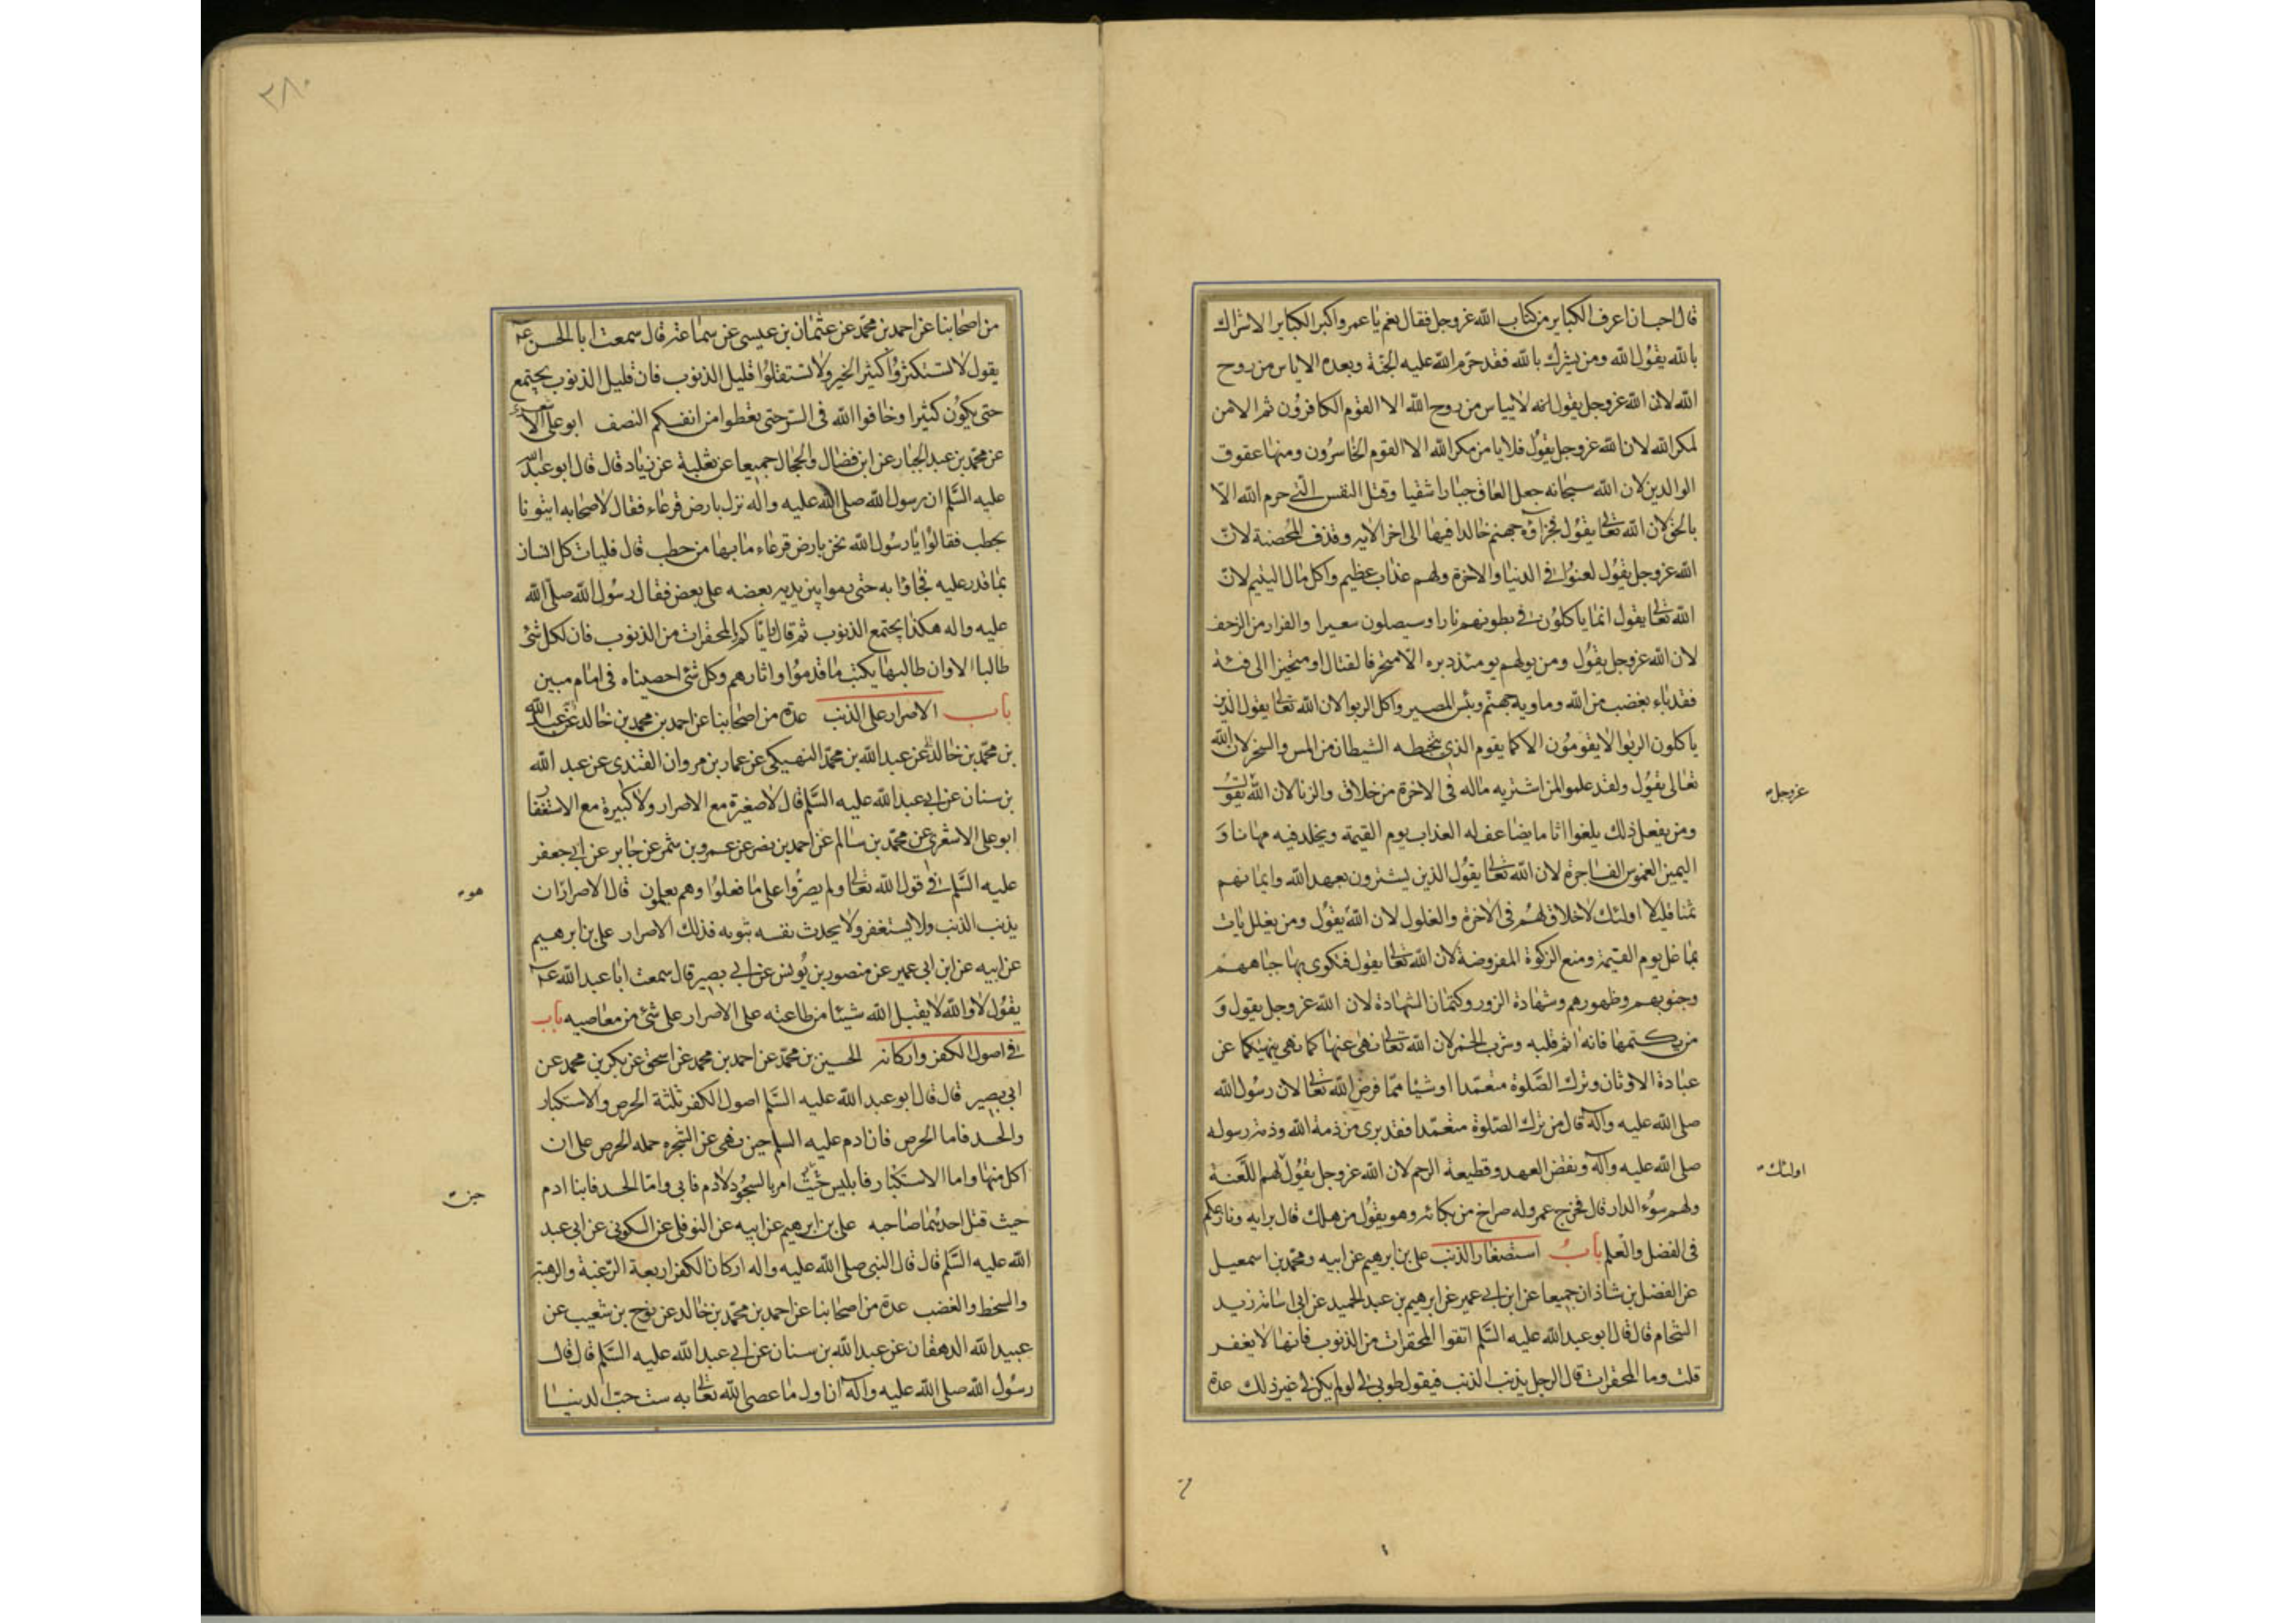 قال احب ان اعرف الكباير من كتاب الله عز وجل فقال نعم يا عمرو اكبر الكباير الاشراك
بالله يقول الله ومن يشرك بالله فقد حرم الله عليه الجنة وبعده الاياس من روح
الله لان الله عز وجل يقول انه لا ييأس من روح الله الا القوم الكافرون ثم الامن
لمكر الله لان الله عز وجل يقول فلا يا من مكر الله الا القوم الخاسرون ومنها عقوق
الوالدين لان الله سبحانه جعل العاق جبارا شقيا وقتل النفس التي حرم الله الا
بالحق لان الله تعالى يقول فجزاؤه جهنم خالدا فيها الى اخر الايه وقذف المحصنة لان
الله عز وجل يقول لعنوا في الدنيا والاخرة ولهم عذاب عظيم واكل مال اليتيم لان
الله تعالى يقول انما ياكلون في بطونهم نارا وسيصلون سعيرا والفرار من الزحف
لان الله عز وجل يقول ومن يولهم يومئذ دبره الا متحرفا لقتال او متحيزا الى فئة
فقد باء بغضب من الله وماويه جهنم وبئس المصير واكل الربوا لان الله تعالى يقول الذين
ياكلون الربوا لا يقومون الا كما يقوم الذي يتخبطه الشيطان من المس والسحر لان الله
تعالى يقول ولقد علموا لمن اشتريه ماله في الاخرة من خلاق والزنا لان الله يقول
عز وجل
ومن يفعل ذلك يلق اثاما يضاعف له العذاب يوم القيمة ويخلد فيه مهانا و
اليمين الغموس الفاجرة لان الله تعالى يقول الذين يشترون بعهد الله وايمانهم
ثمنا قليلا اولئك لا خلاق لهم في الاخرة والغلول لان الله يقول ومن يغلل يات
بما غل يوم القيمة ومنع الزكوة المفروضة لان الله تعالى يقول فتكوى بها جباههم
وجنوبهم وظهورهم وشهادة الزور وكتمان الشهادة لان الله عز وجل يقول و
من يكتمها فانه اثم قلبه وشرب الخمر لان الله تعالى نهى عنها كما نهى عن
عبادة الاوثان وترك الصلوة متعمدا او شيئا مما فرض الله تعالى لان رسول الله
صلى الله عليه وآله قال من ترك الصلوة متعمدا فقد برئ من ذمة الله وذمة رسوله
صلى الله عليه وآله ونقض العهد وقطيعة الرحم لان الله عز وجل يقول لهم اللعنة
اولئك
ولهم سوء الدار قال فخرج عمرو وله صراخ من بكائه وهو يقول من هلك قال برايه ونازعكم
في الفضل والعلم باب استصغار الذنب علي بن ابرهيم عن ابيه ومحمد بن اسمعيل
عن الفضل بن شاذان جميعا عن ابن ابي عمير عن ابرهيم بن عبد الحميد عن ابي اسامة زيد
الشحام قال قال ابو عبد الله عليه السلم اتقوا المحقرات من الذنوب فانها لا يغفر
قلت وما المحقرات قال الرجل يذنب الذنب فيقول طوبى لي لو لم يكن لي غير ذلك عدة
٣٨٠
من اصحابنا عن احمد بن محمد عن عثمان بن عيسى عن سماعة قال سمعت ابا الحسن ع
يقول لا تستكثروا كثير الخير ولا تستقلوا قليل الذنوب فان قليل الذنوب يجتمع
حتى يكون كثيرا وخافوا الله في السر حتى تعطوا من انفسكم النصف ابو علي الا
عن محمد بن عبد الجبار عن ابن فضال والحجال جميعا عن ثعلبة عن زياد قال قال ابو عبد الله
عليه السلم ان رسول الله صلى الله عليه واله نزل بارض قرعاء فقال لاصحابه ايتونا
بحطب فقالوا يا رسول الله نحن بارض قرعاء ما بها من حطب قال فليات كل انسان
بما قدر عليه فجاؤا به حتى رموا بين يديه بعضه على بعض فقال رسول الله صلى الله
عليه واله هكذا يجتمع الذنوب ثم قال اياكم والمحقرات من الذنوب فان لكل شئ
طالبا الا وان طالبها يكتب ما قدموا واثارهم وكل شئ احصيناه في امام مبين
باب الاصرار على الذنب عدة من اصحابنا عن احمد بن محمد بن خالد عن عبد الله
بن محمد بن خالد عن عبد الله بن محمد النهيكي عن عمار بن مروان القندي عن عبد الله
بن سنان عن ابي عبد الله عليه السلم قال لا صغيرة مع الاصرار ولا كبيرة مع الاستغفار
ابو علي الاشعري عن محمد بن سالم عن احمد بن نضر عن عمرو بن شمر عن جابر عن ابي جعفر
عليه السلم في قول الله تعالى ولم يصروا على ما فعلوا وهم يعلمون قال الاصرار ان
هو
يذنب الذنب ولا يستغفر ولا يحدث نفسه بتوبه فذلك الاصرار علي بن ابرهيم
عن ابيه عن ابن ابي عمير عن منصور بن يونس عن ابي بصير قال سمعت ابا عبد الله ع
يقول لا والله لا يقبل الله شيئا من طاعته على الاصرار على شئ من معاصيه باب
في اصول الكفر واركانه الحسين بن محمد عن احمد بن محمد عن اسحق عن بكر بن محمد عن
ابي بصير قال قال ابو عبد الله عليه السلم اصول الكفر ثلثة الحرص والاستكبار
والحسد فاما الحرص فان ادم عليه السلم حين نهى عن الشجره حمله الحرص على ان
اكل منها واما الاستكبار فابليس حيث امر بالسجود لادم فابى واما الحسد فابنا ادم
حيث قتل احديهما صاحبه علي بن ابرهيم عن ابيه عن النوفلي عن السكوني عن ابي عبد
الله عليه السلم قال قال النبي صلى الله عليه واله اركان الكفر اربعة الرغبة والرهبة
والسخط والغضب عدة من اصحابنا عن احمد بن محمد بن خالد عن نوح بن شعيب عن
عبيد الله الدهقان عن عبد الله بن سنان عن ابي عبد الله عليه السلم قال قال
رسول الله صلى الله عليه وآله ان اول ما عصى الله تعالى به ست حب الدنيا